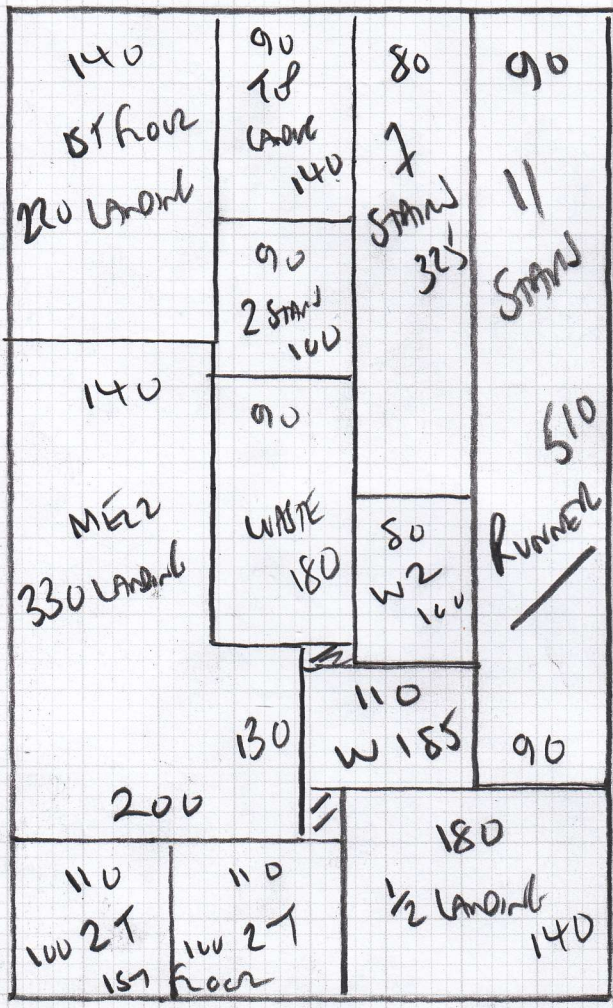 140
1ST FLOOR
220 LANDING
90
TOP
LANDING
140
80
7
STAIRS
325
90
11
STAIRS
510
RUNNER
90
90
2 STAIRS
100
140
MEZZ
330 LANDING
130
200
90
WASTE
180
80
W2
100
110
W 185
110
100 2T
1ST
110
100 2T
FLOOR
180
1/2 LANDING
140